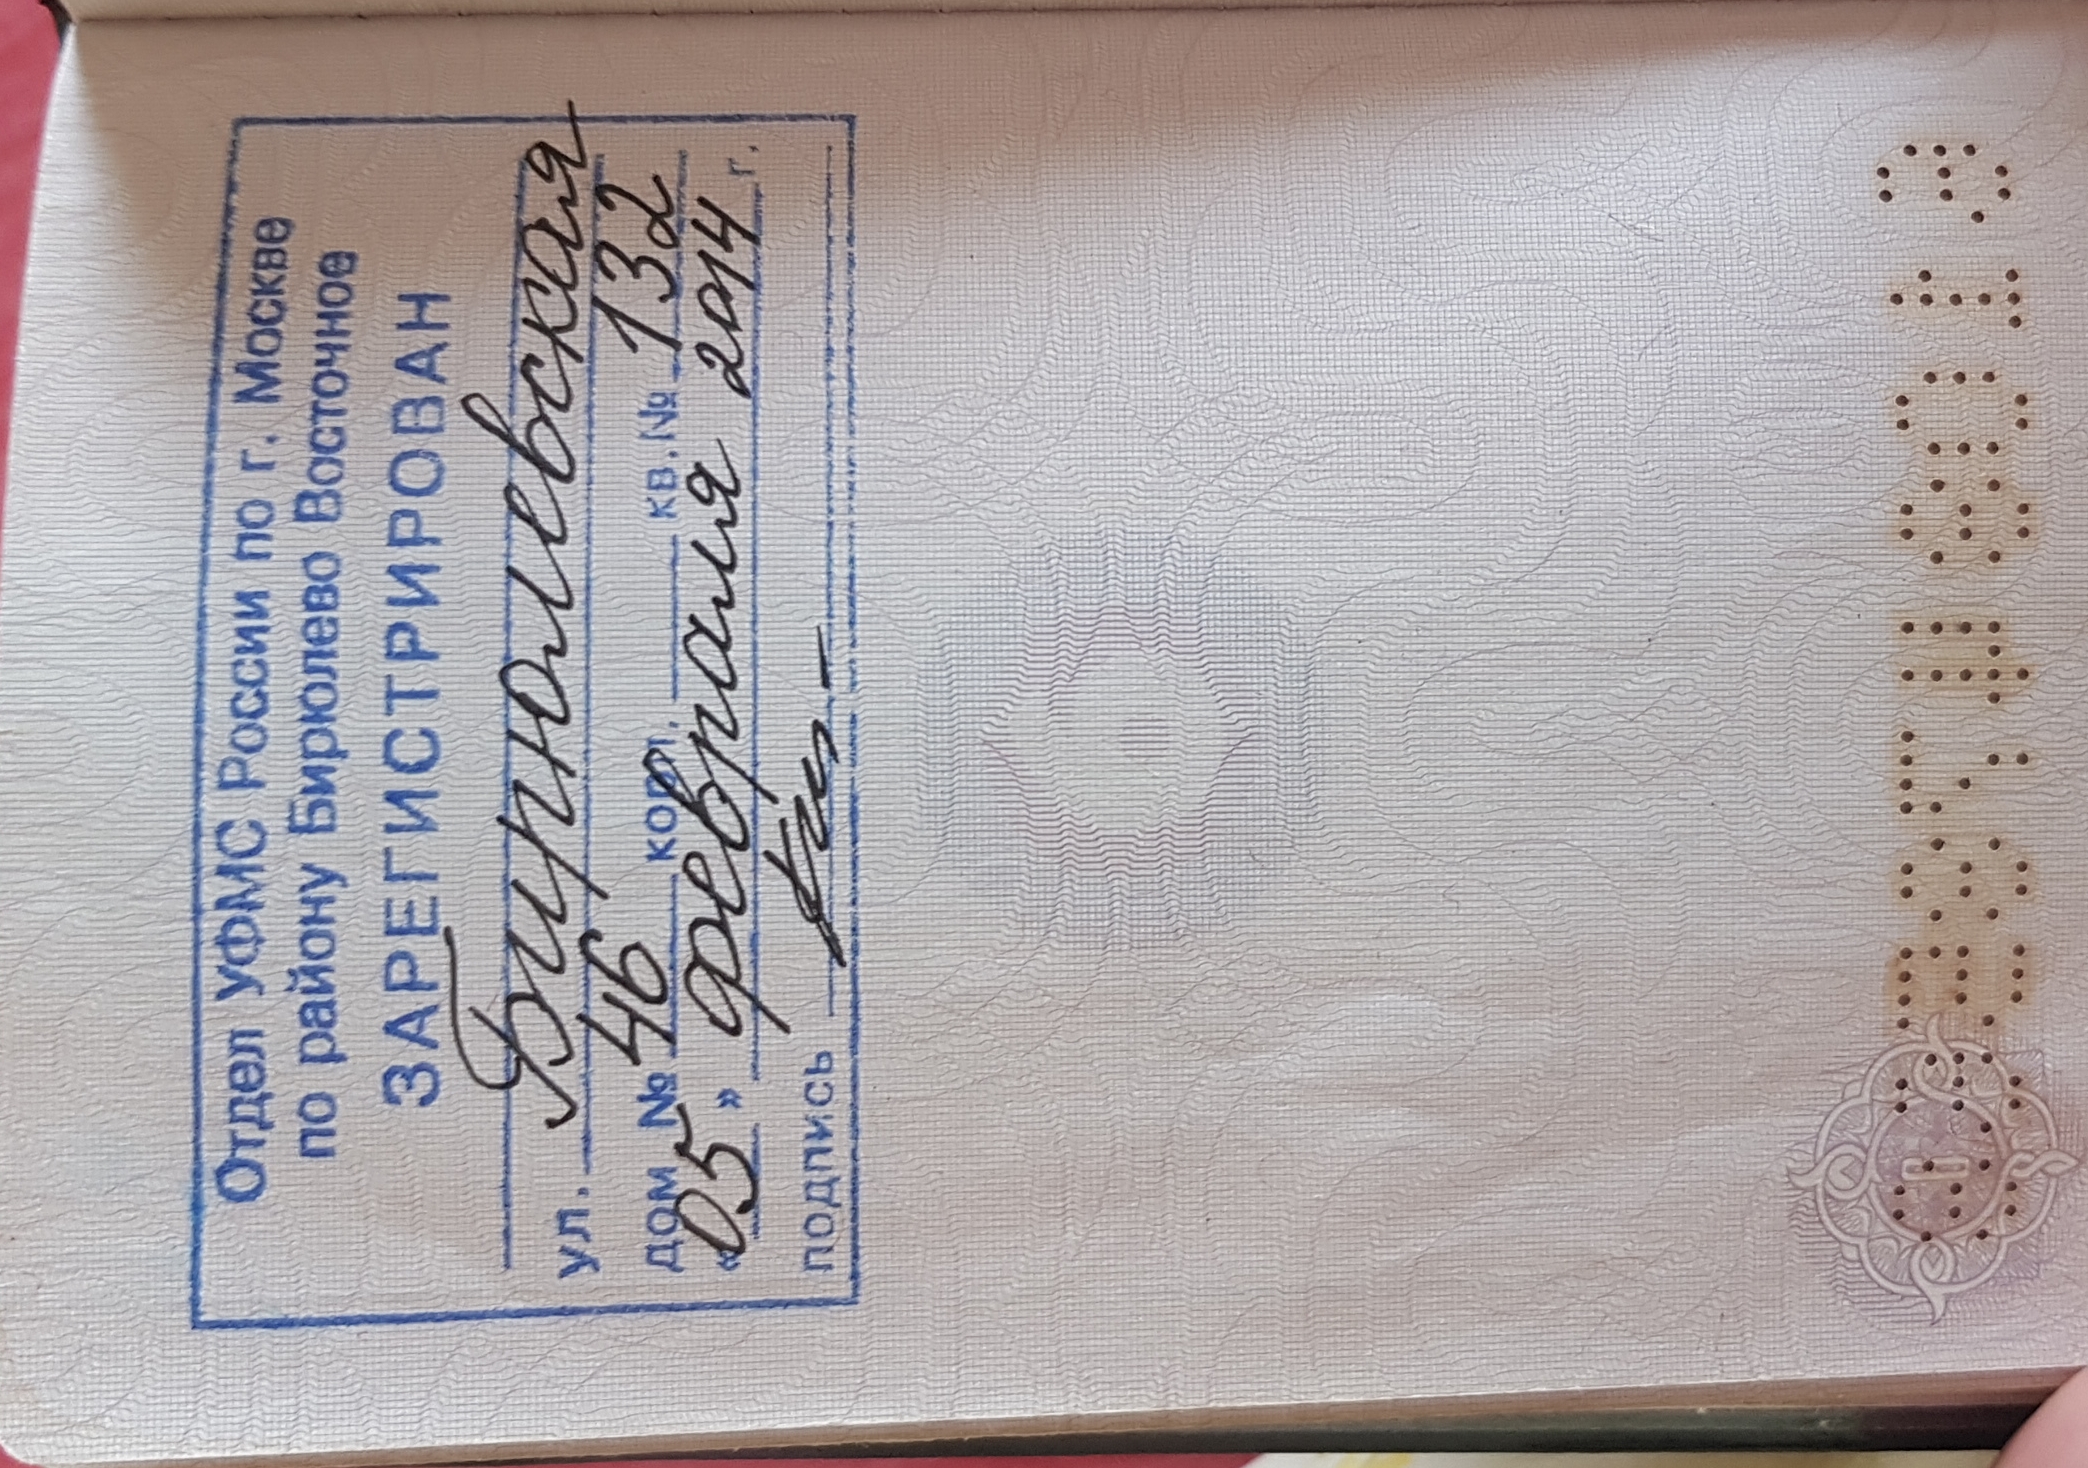 Отдел УФМС России по г. Москве
по району Бирюлево Восточное
ЗАРЕГИСТРИРОВАН
ул. Бирюлевская
дом № 46 корп. кв. № 132
«05» февраля 2014 г.
подпись